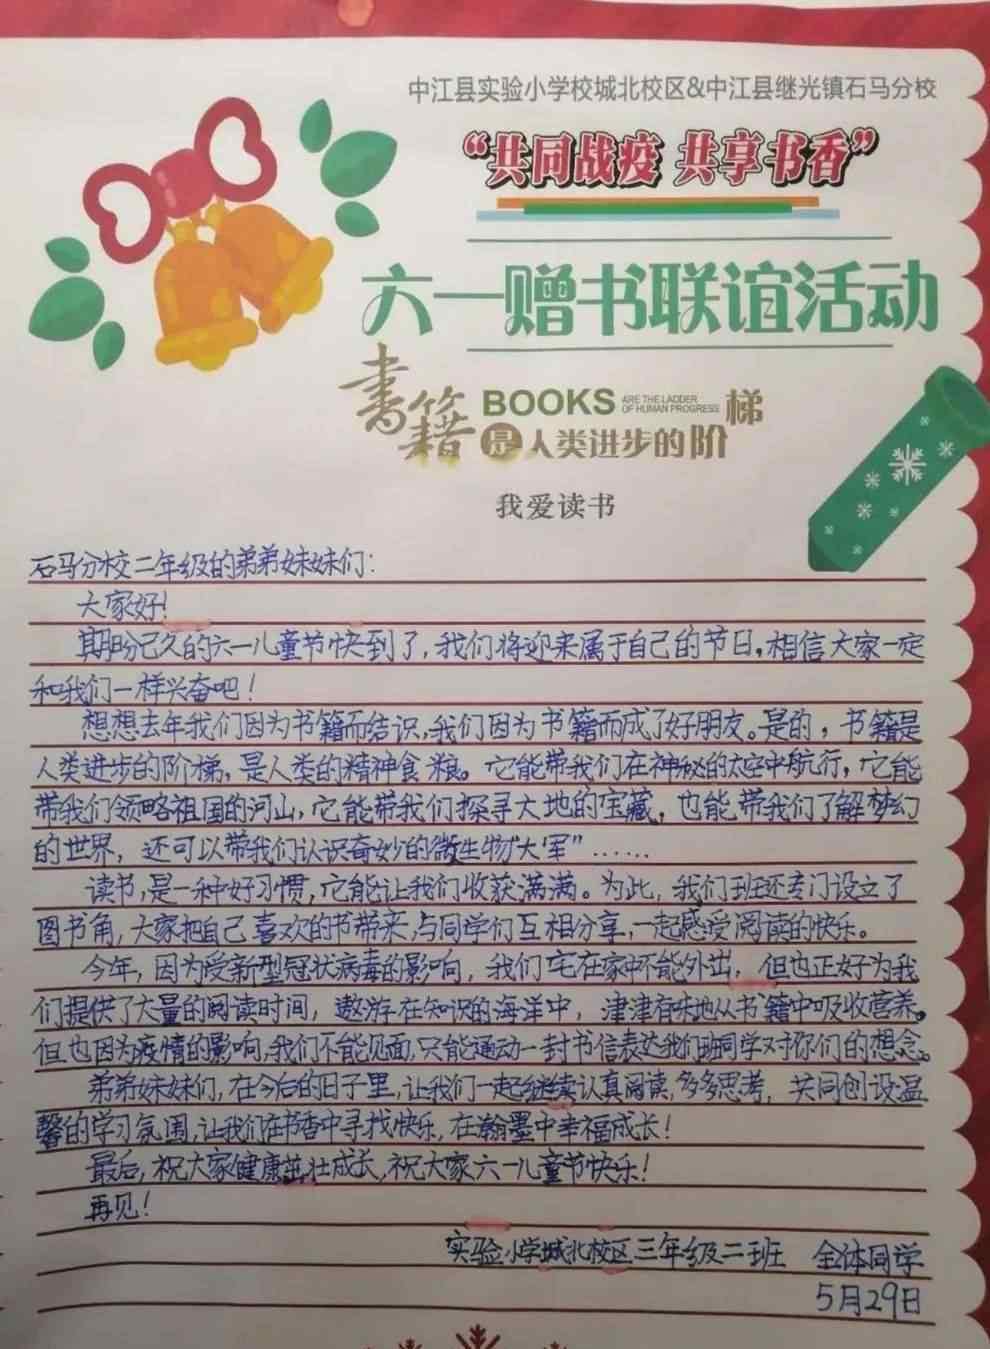 中江县实验小学校城北校区&中江县继光镇石马分校
“共同战疫 共享书香”
六一赠书联谊活动
書籍 BOOKS ARE THE LADDER OF HUMAN PROGRESS 梯
是人类进步的阶
我爱读书
石马分校二年级的弟弟妹妹们:
大家好!
期盼已久的六一儿童节快到了,我们将迎来属于自己的节日,相信大家一定
和我们一样兴奋吧!
想想去年我们因为书籍而结识,我们因为书籍而成了好朋友。是的,书籍是
人类进步的阶梯,是人类的精神食粮。它能带我们在神秘的太空中航行,它能
带我们领略祖国的河山,它能带我们探寻大地的宝藏,也能带我们了解梦幻
的世界,还可以带我们认识奇妙的微生物“大军”……
读书,是一种好习惯,它能让我们收获满满。为此,我们班还专门设立了
图书角,大家把自己喜欢的书带来,与同学们互相分享,一起感受阅读的快乐。
今年,因为受新型冠状病毒的影响,我们宅在家中不能外出,但也正好为我
们提供了大量的阅读时间,遨游在知识的海洋中,津津有味地从书籍中吸收营养。
但也因为疫情的影响,我们不能见面,只能通动一封书信表达我们班同学对你们的想念。
弟弟妹妹们,在今后的日子里,让我们一起继续认真阅读,多多思考,共同创设温
馨的学习氛围,让我们在书香中寻找快乐,在瀚墨中幸福成长!
最后,祝大家健康茁壮成长,祝大家六一儿童节快乐!
再见!
实验小学城北校区三年级二班 全体同学
5月29日